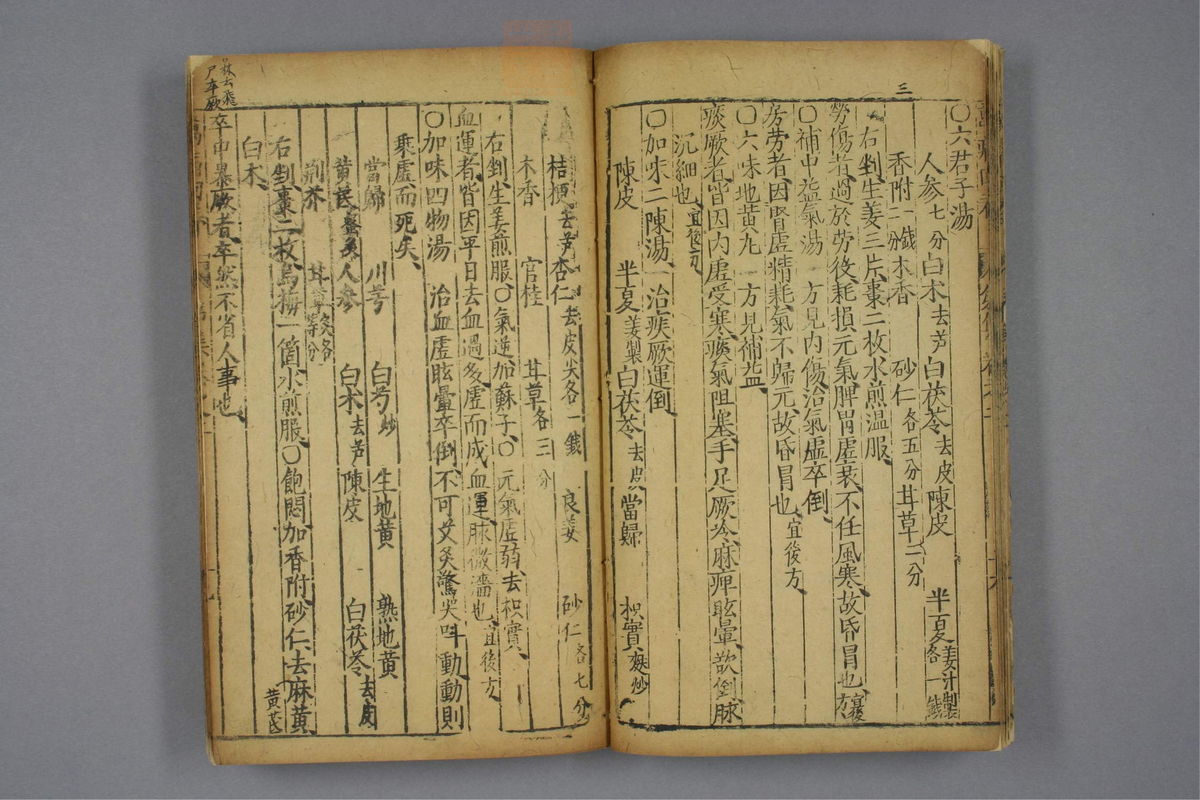 三
○六君子湯
人參七分白朮去芦白茯苓去皮陳皮 半夏姜汁製各一錢
香附一錢二分木香 砂仁各五分甘草二分
右剉生姜三片棗二枚水煎温服
勞傷者過於勞役耗損元氣脾胃虛衰不任風寒故昏冒也宜後方
○補中益氣湯 方見內傷治氣虛卒倒
房勞者因腎虛精耗氣不歸元故昏冒也宜後方
○六味地黃丸 方見補益
痰厥者皆因內虛受寒痰氣阻塞手足厥冷麻痺眩暈欲倒脉
沉細也宜後方
○加味二陳湯 治痰厥運倒
陳皮 半夏姜製白茯苓去皮當歸 枳實麸炒
桔梗去芦杏仁去皮尖各一錢 良姜 砂仁各七分
木香 官桂 甘草各三分
右剉生姜煎服○氣逆加蘇子○元氣虛弱去枳實
血運者皆因平日去血過多虛而成血運脉微濇也宜後方
○加味四物湯 治血虛眩暈卒倒不可艾灸驚哭叫動動則
乘虛而死矣
當歸 川芎 白芍炒 生地黃 熟地黃
黃芪蜜炙人參 白朮去芦陳皮 白茯苓去皮
荊芥 甘草炙各等分
右剉棗一枚烏梅一箇水煎服○飽悶加香附砂仁去麻黃黃芪
白朮
卒中暴厥者卒然不省人事也
尸卒厥